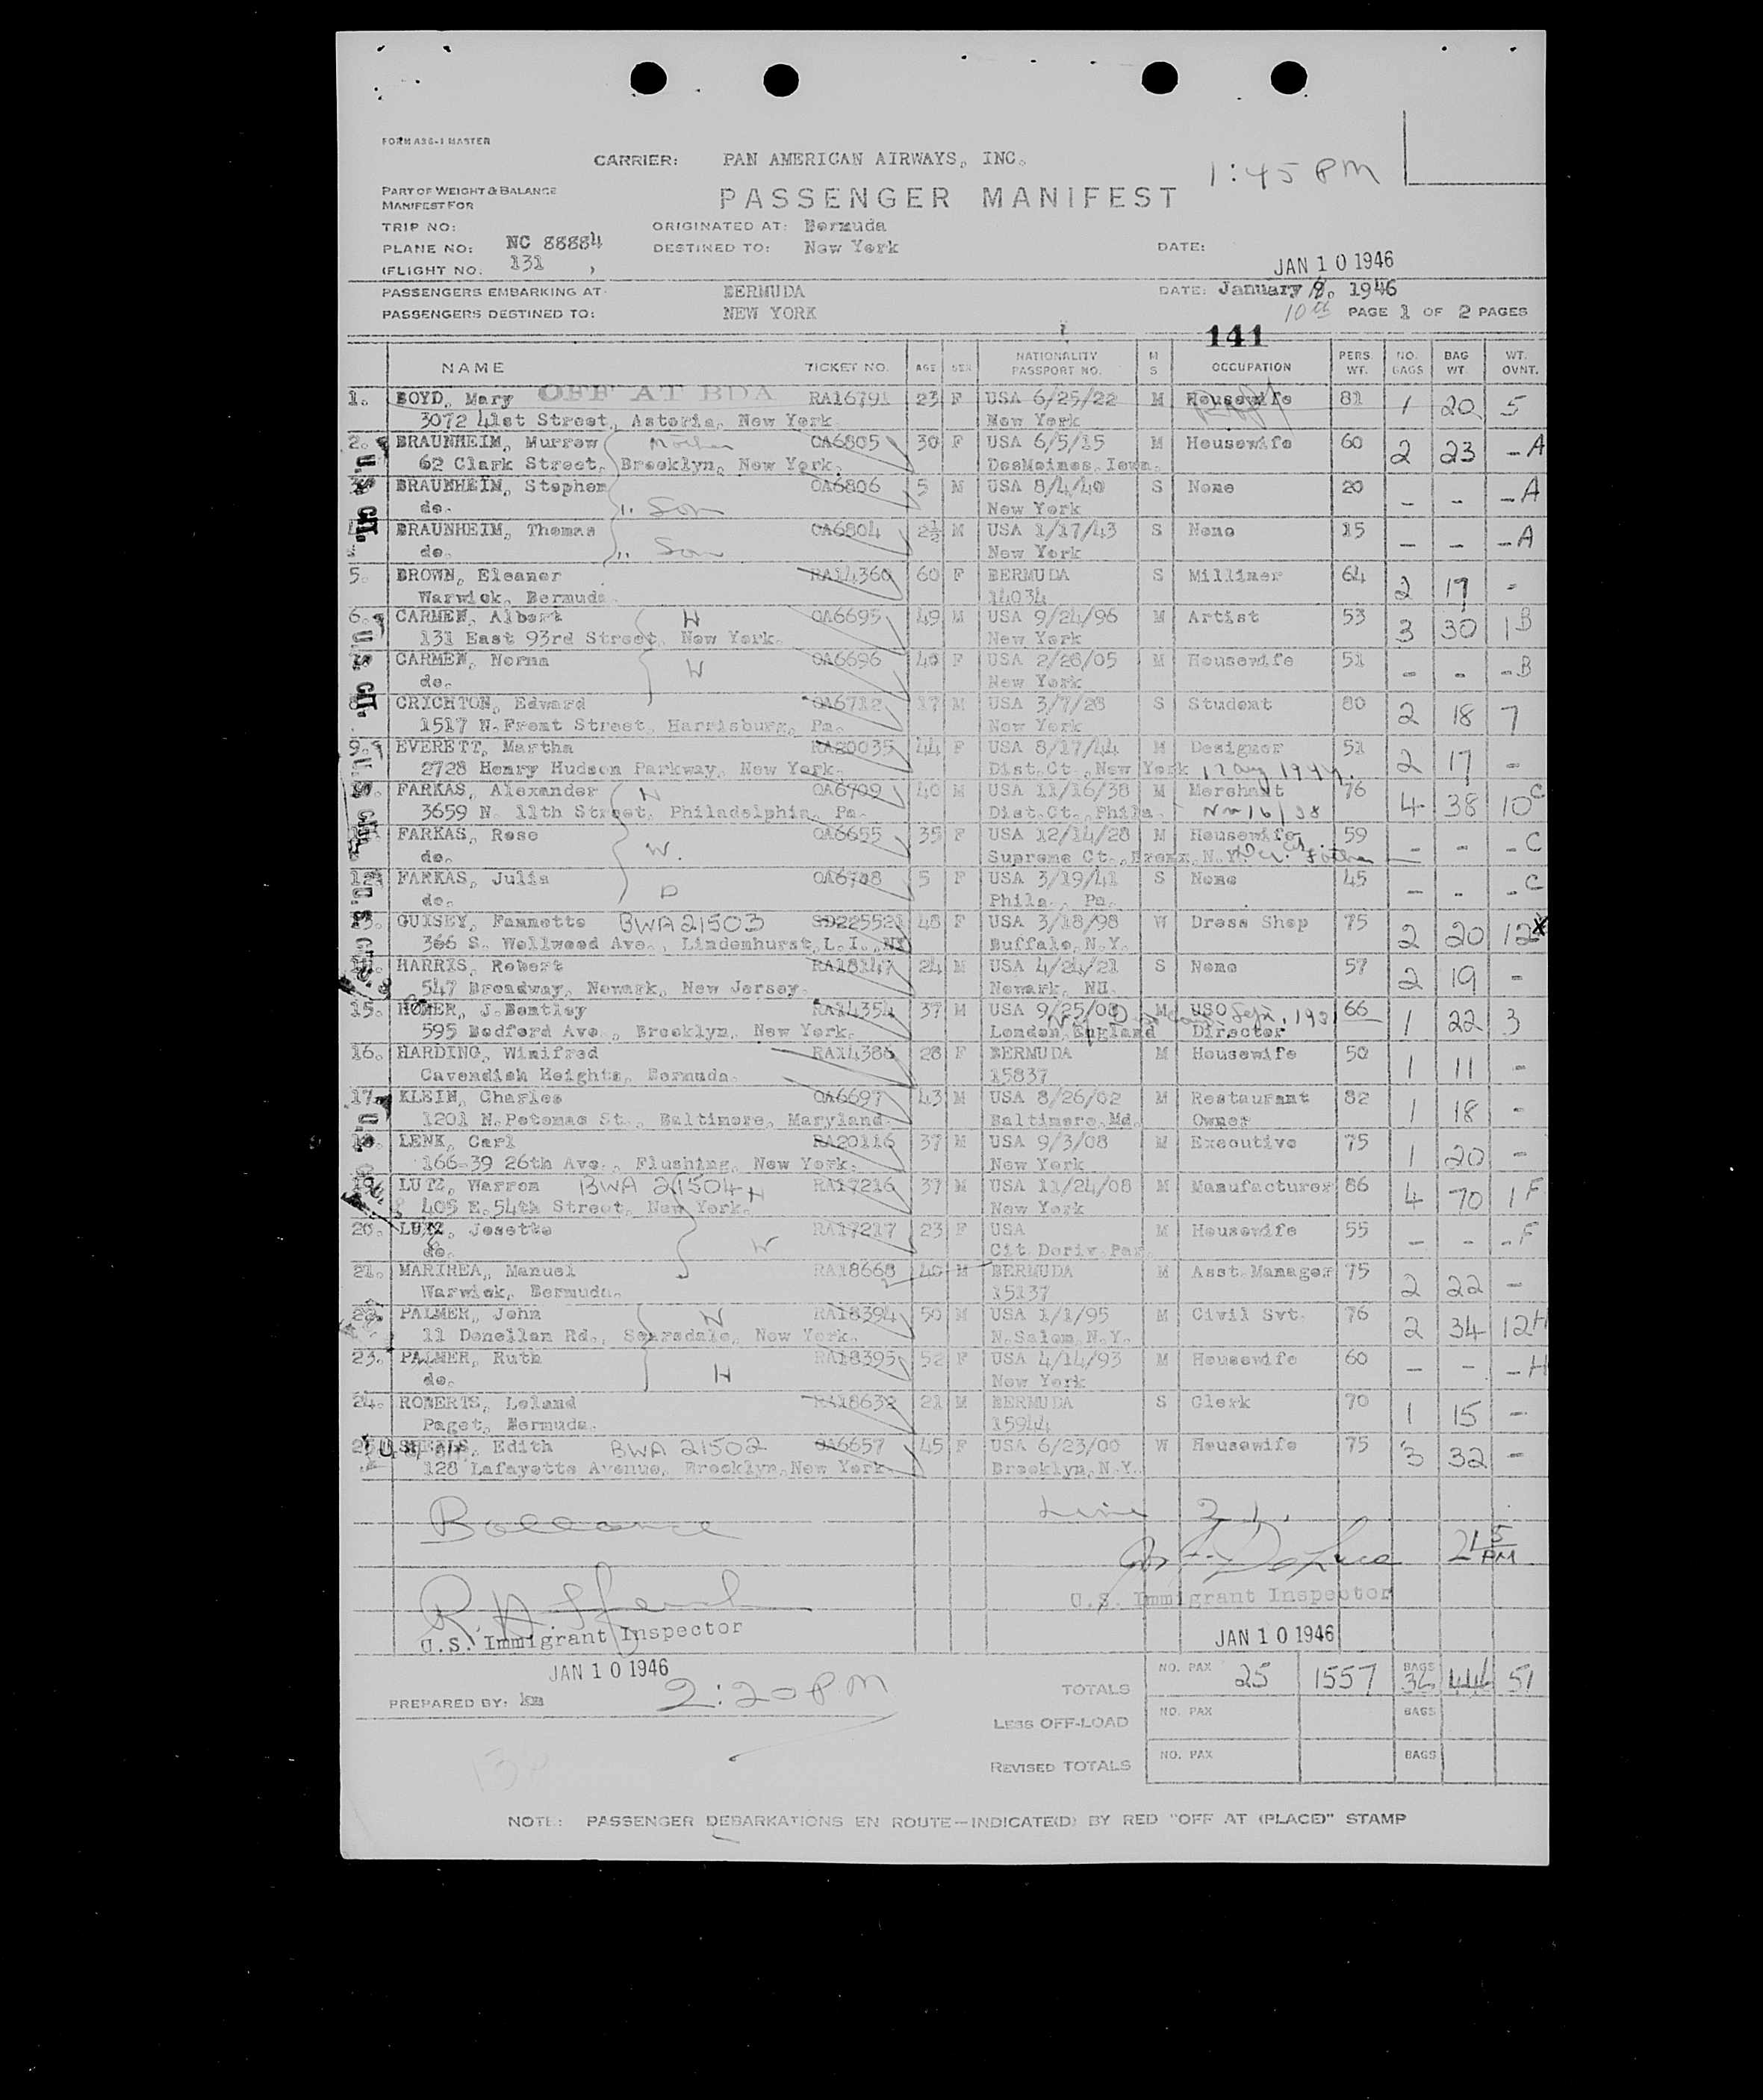 FORM A36-1 MASTER
CARRIER: PAN AMERICAN AIRWAYS, INC.
1:45 PM
PART OF WEIGHT & BALANCE
MANIFEST FOR
PASSENGER MANIFEST
TRIP NO: ORIGINATED AT: Bermuda
PLANE NO: NC 88884 DESTINED TO: New York DATE:
(FLIGHT NO. 131 ) JAN 10 1946
PASSENGERS EMBARKING AT: BERMUDA DATE: January 9, 1946
PASSENGERS DESTINED TO: NEW YORK 10th PAGE 1 OF 2 PAGES
141
NAME TICKET NO. AGE SEX NATIONALITY PASSPORT NO. M S OCCUPATION PERS. WT. NO. BAGS BAG WT. WT. OVNT.
1. BOYD, Mary OFF AT BDA RA16791 23 F USA 6/25/22 M Housewife 81 1 20 5
3072 41st Street, Astoria, New York New York
2. BRAUNHEIM, Murrow Mother OA6805 30 F USA 6/5/15 M Housewife 60 2 23 - A
62 Clark Street, Brooklyn, New York. DesMoines, Iowa.
3. BRAUNHEIM, Stephen OA6806 5 M USA 8/4/40 S None 20 - - - A
do. " Son New York
4. BRAUNHEIM, Thomas OA6804 2½ M USA 1/17/43 S None 15 - - - A
do. " Son New York
5. BROWN, Eleanor RA14360 60 F BERMUDA S Milliner 64 2 19 -
Warwick, Bermuda. 14034
6. CARMEN, Albert H OA6695 49 M USA 9/24/96 M Artist 53 3 30 1 B
131 East 93rd Street, New York. New York
CARMEN, Norma W OA6696 40 F USA 2/28/05 M Housewife 51 - - - B
do. New York
8. CRICHTON, Edward OA6712 17 M USA 3/7/28 S Student 80 2 18 7
1517 N. Front Street, Harrisburg, Pa. New York
9. EVERETT, Martha RA20035 44 F USA 8/17/44 M Designer 51 2 17 -
2728 Henry Hudson Parkway, New York. Dist. Ct., New York 17 Aug 1944.
FARKAS, Alexander H OA6709 40 M USA 11/16/38 M Merchant 76 4 38 10 C
3659 N. 11th Street, Philadelphia, Pa. Dist. Ct., Phila. Nov 16/38
FARKAS, Rose OA6655 35 F USA 12/14/28 M Housewife 59 - - - C
do. W. Supreme Ct., Bronx, N.Y. Father
12. FARKAS, Julia OA6708 5 F USA 3/19/41 S None 45 - - - C
do. D Phila., Pa.
GUISEY, Fannette BWA 21503 SD225521 48 F USA 3/18/98 W Dress Shop 75 2 20 12 X
366 S. Wellwood Ave., Lindenhurst, L.I., NY Buffalo, N.Y.
HARRIS, Robert RA18147 24 M USA 4/24/21 S None 57 2 19 -
547 Broadway, Newark, New Jersey. Newark, NJ.
15. HOMER, J. Bentley RA14354 37 M USA 9/25/08 M USO 66 1 22 3
595 Bedford Ave., Brooklyn, New York. London, England Director
16. HARDING, Winifred RA14386 28 F BERMUDA M Housewife 50 1 11 -
Cavendish Heights, Bermuda. 15837
17. KLEIN, Charles OA6697 43 M USA 8/26/02 M Restaurant 82 1 18 -
1201 N. Potomac St., Baltimore, Maryland. Baltimore, Md. Owner
LENK, Carl RA20116 37 M USA 9/3/08 M Executive 75 1 20 -
166-39 26th Ave., Flushing, New York. New York
LUTZ, Warren BWA 21504 H RA17216 37 M USA 11/24/08 M Manufacturer 86 4 70 1 F
405 E. 54th Street, New York. New York
20. LUTZ, Josette RA17217 23 F USA M Housewife 55 - - - F
do. W Cit. Deriv. Par.
21. MARIREA, Manuel RA18668 40 M BERMUDA M Asst. Manager 75 2 22 -
Warwick, Bermuda. 15137
22. PALMER, John RA18394 50 M USA 1/1/95 M Civil Svt. 76 2 34 12 H
11 Donellan Rd., Scarsdale, New York. N. Salem, N.Y.
23. PALMER, Ruth RA18395 52 F USA 4/14/93 M Housewife 60 - - - H
do. H New York
24. ROBERTS, Leland RA18632 21 M BERMUDA S Clerk 70 1 15 -
Paget, Bermuda. 15944
25. Edith BWA 21502 OA6657 45 F USA 6/23/00 W Housewife 75 3 32 -
128 Lafayette Avenue, Brooklyn, New York. Brooklyn, N.Y.
Line 21.
2 15 PM
U.S. Immigrant Inspector
U.S. Immigrant Inspector
JAN 10 1946
JAN 10 1946
2:20 PM
PREPARED BY:
TOTALS NO. PAX 25 1557 BAGS 36 444 51
LESS OFF-LOAD NO. PAX BAGS
REVISED TOTALS NO. PAX BAGS
NOTE: PASSENGER DEBARKATIONS EN ROUTE—INDICATE(D) BY RED "OFF AT (PLACE)" STAMP